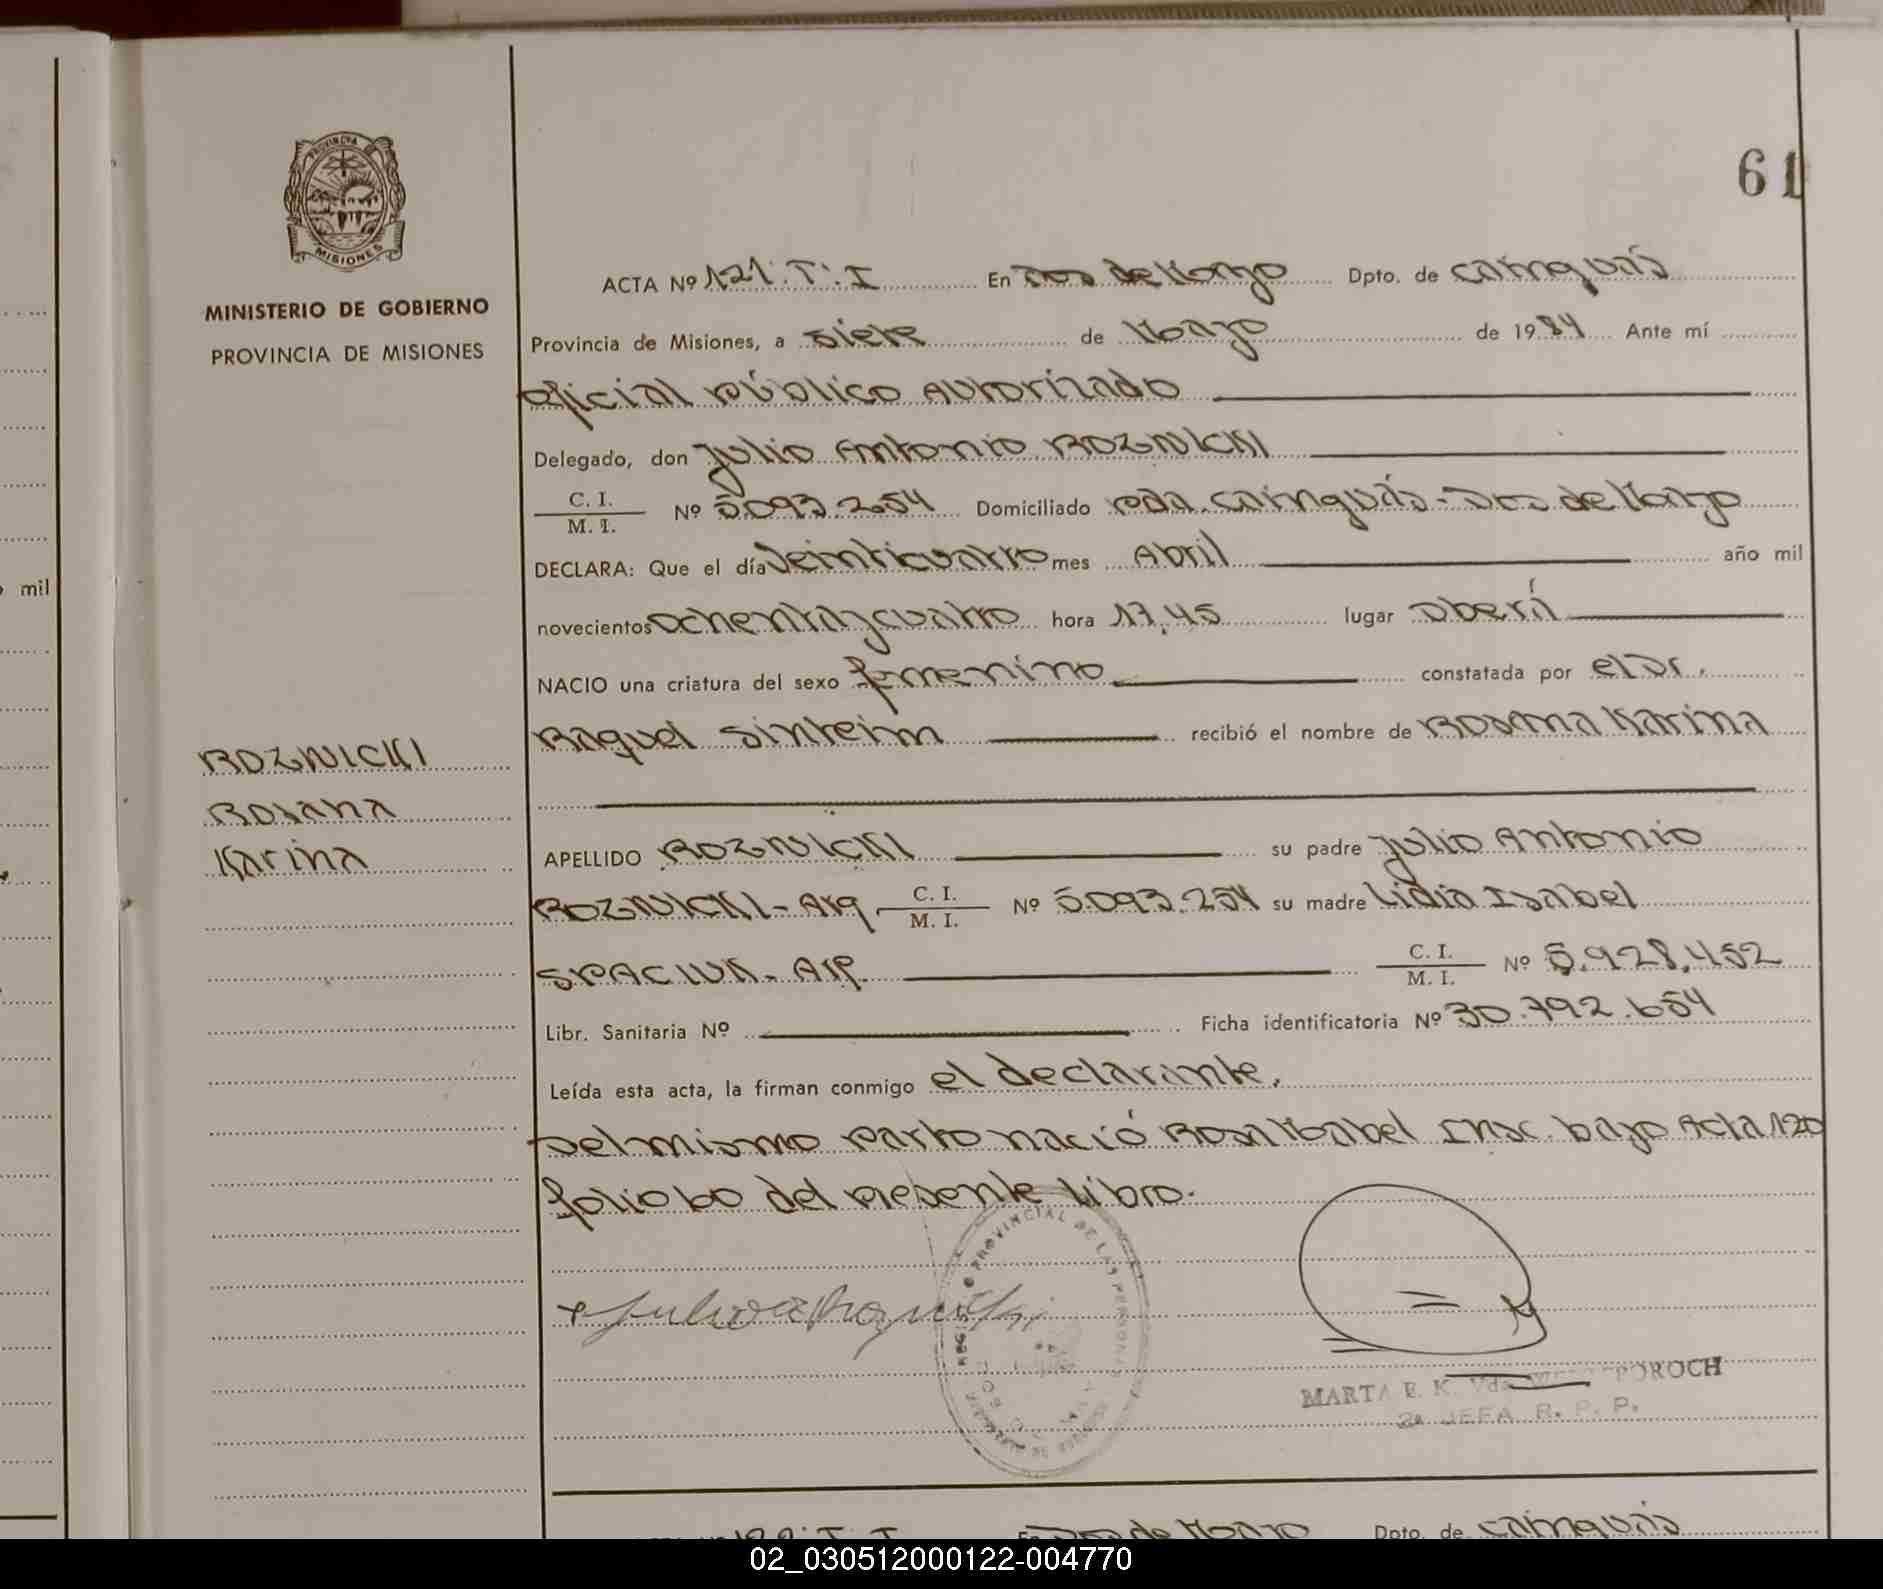 61
PROVINCIA DE
MISIONES
MINISTERIO DE GOBIERNO
PROVINCIA DE MISIONES
ACTA Nº 121. T: I En Dos de Mayo Dpto. de Cainguás
Provincia de Misiones, a siete de Mayo de 1984 Ante mí
Oficial Público Autorizado
Delegado, don Julio Antonio ROZNICKI
C. I.
M. I. Nº 5.093.254 Domiciliado Pda. Cainguás - Dos de Mayo
DECLARA: Que el día Veinticuatro mes Abril año mil
novecientos Ochentaycuatro hora 17,45 lugar Oberá
NACIO una criatura del sexo femenino constatada por el Dr.
Raquel Sinteim recibió el nombre de Rosana Karina
ROZNICKI
Rosana
Karina
APELLIDO ROZNICKI su padre Julio Antonio
ROZNICKI - Arg. C. I.
M. I. Nº 5.093.254 su madre Lidia Isabel
SPACIUK - Arg. C. I.
M. I. Nº 5.928.452
Libr. Sanitaria Nº Ficha identificatoria Nº 30.792.654
Leída esta acta, la firman conmigo el declarante.
Del mismo parto nació Rosa Mabel Insc. bajo Acta 120
folio 60 del presente Libro.
REGISTRO PROVINCIAL DE LAS PERSONAS
MARTA E. K. Vda
POROCH
2a JEFA R. P. P.
T. I En Dos de Mayo Dpto. de Cainguás
mil
02_030512000122-004770